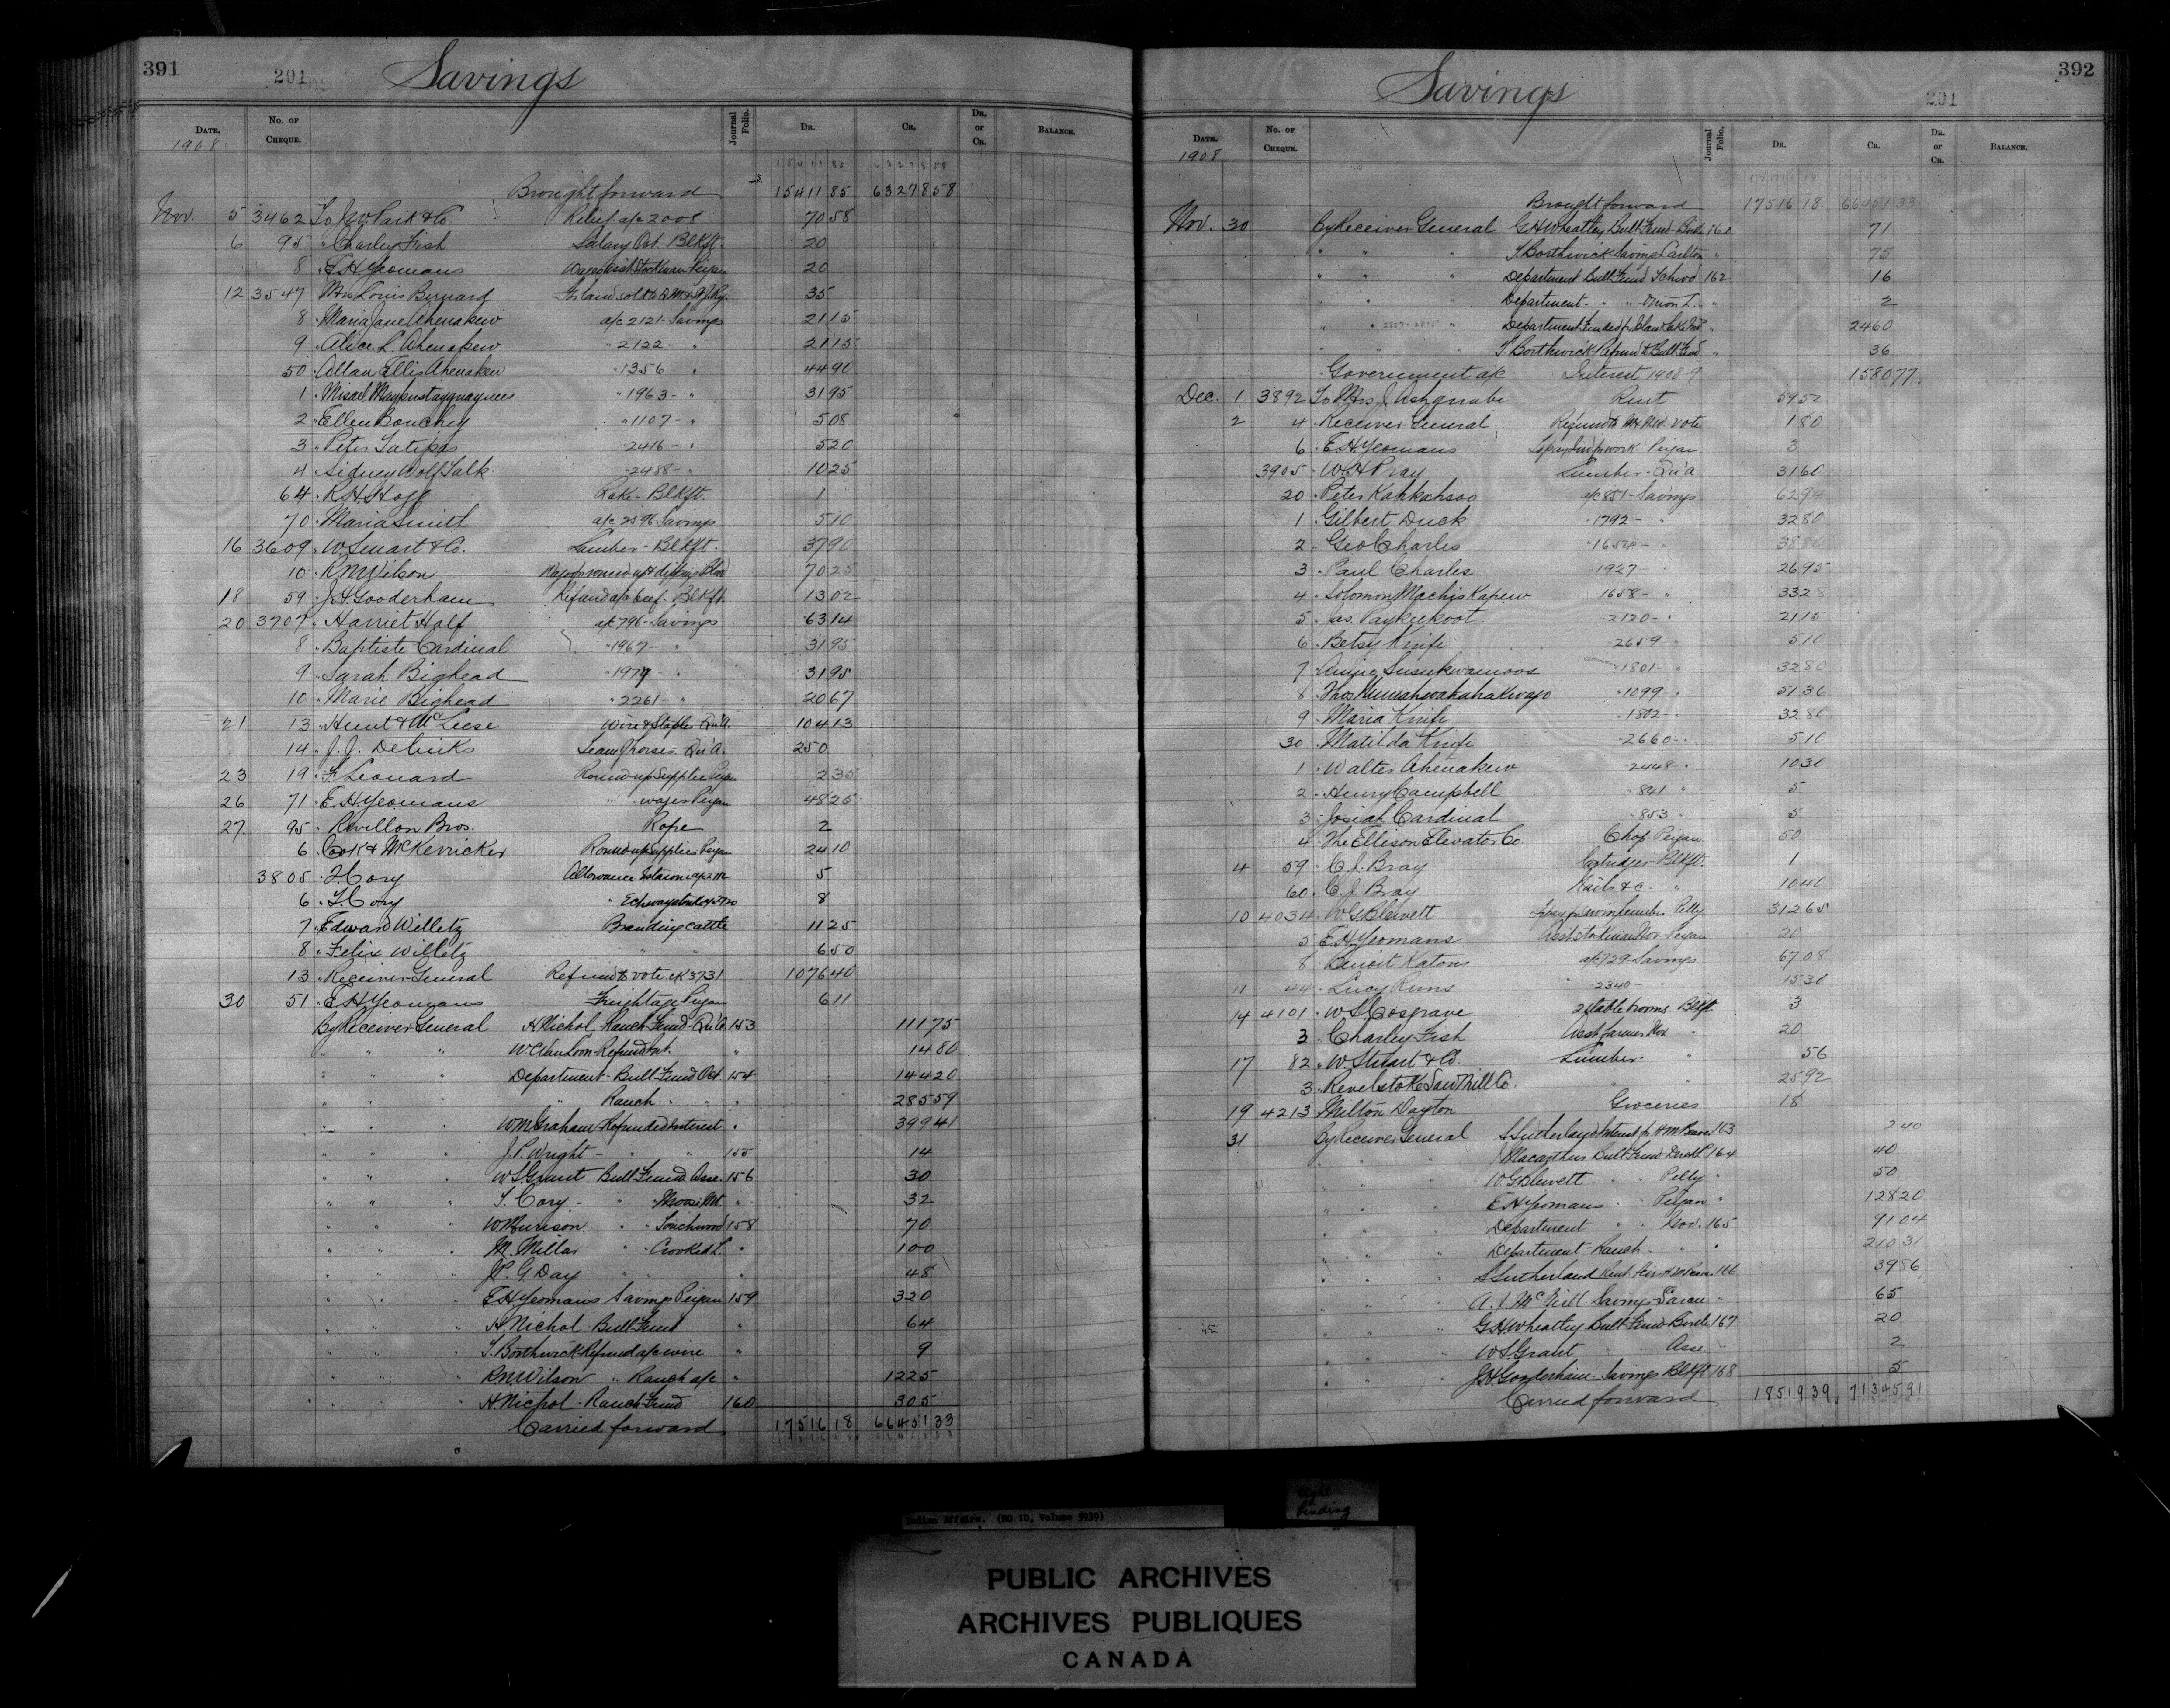 391 201 Savings
DATE. No. OF CHEQUE. Journal Folio. DR. CR. DR. or CR. BALANCE.
1908
15411 85 63278 58
Brought forward 15411 85 63278 58
Nov. 5 3462 To J.W. Park & Co. Relief a/c 2008 70 58
6 95 " Charley Fish Salary Oct. Blkft. 20
8 " E H Yeomans Wages asst Stockman Peigan 20
12 3547 " Mrs Louis Bernard 35
8 " Maria Jane Ahenakew a/c 2121 - Savings 21 15
9 " Alice L. Ahenakew " 2122 - " 21 15
50 " Allan Ellis Ahenakew " 1356 - " 44 90
1 " " 1963 - " 31 95
2 " Ellen Bouchey " 1107 - " 5 08
3 " Peter " 2416 - " 5 20
4 " Sidney Wolf Talk " 2488 - " 10 25
64 " R.H. Hogg Rake - Blkft. 1
70 " Maria Smith a/c 2596 Savings 5 10
16 3609 " W Stuart & Co. Lumber - Blkft. 37 90
10 " R N Wilson 70 25
18 59 " J H Gooderham Refund a/c beef. Blkft. 13 02
20 3707 " Harriet Half a/c 796 - Savings 63 14
8 " Baptiste Cardinal " 1967 - " 31 95
9 " Sarah Bighead " 1979 - " 31 95
10 " Marie Bighead " 2261 - " 20 67
21 13 " Hunt & McLeese Wire & Staples Qu'A. 104 13
14 " J. J. Team horses Qu'A. 250
23 19 " F Leonard Round up Supplies Peigan 2 35
26 71 " E H Yeomans " " wages Peigan 48 25
27 95 " Revillon Bros. Rope 2
6 " Cook & McKerricker Round up supplies Peigan 24 10
3805 " T. Cory Allowance 5
6 " T. Cory 8
7 " Edward Willetz Branding cattle 11 25
8 " Felix Willetz " " 6 50
13 " Receiver General Refund to vote ck 3731 1076 40
30 51 " E H Yeomans Freightage Peigan 6 11
By Receiver General H Nichol Ranch Fund - Qu'A. 153 111 75
" " " 14 80
" " " Department - Bull Fund Oct 154 144 20
" " " " Ranch " " " 285 59
" " " W M Graham Refunded Interest " 399 41
" " " J. P. Wright - " " 155 14
" " " W S Grant Bull Fund Asse. 156 30
" " " T. Cory - " " Moose Mt. " 32
" " " W Murison " " Touchwood 158 70
" " " M. Millar " " Crooked L. " 100
" " " J.P. G. Day " " " 48
" " " E H Yeomans Savings Peigan 159 320
" " " H Nichol - Bull Fund " 64
" " " T. Borthwick Refund a/c wire " 9
" " " R.N. Wilson " Ranch a/c " 12 25
" " " H Nichol - Ranch Fund 160 3 05
Carried forward 17516 18 66451 33
392 Savings 201
DATE. No. OF CHEQUE. Journal Folio. DR. CR. DR. or CR. BALANCE.
1908
Brought forward 17516 18 66451 33
Nov. 30 By Receiver General G H Wheatley Bull Fund - Birtle 160 71
" " " T. Borthwick Savings Carlton " 75
" " " Department Bull Fund Tchwd 162 16
" " " Department " " " 2
" " " Department 24 60
" " " T. Borthwick Refund to Bull Fund " 36
" Government a/c Interest 1908-9 1580 77
Dec. 1 3892 To Mrs J. Ashqnabe Rent 59 52
2 4 " Receiver General Refund to 1 80
6 " E H Yeomans work Peigan 3
3905 " W H Pray Lumber - Qu'A. 31 60
20 " Peter Kahkahsoo a/c 851 - Savings 62 94
1 " Gilbert Duck " 1792 - " 32 80
2 " Geo Charles " 1654 - " 38 80
3 " Paul Charles " 1927 - " 26 95
4 " Solomon Machiskapew " 1658 - " 33 28
5 " Jas. Paykeekoot " 2120 - " 21 15
6 " Betsy Knife " 2659 - " 5 10
7 " " 1801 - " 32 80
8 " Thos " 1099 - " 51 36
9 " Maria Knife " 1802 - " 32 80
30 " Matilda Knife " 2660 - " 5 10
1 " Walter Ahenakew " 2448 - " 10 30
2 " Henry Campbell " 841 " 5
3 " Josiah Cardinal " 853 " 5
4 " The Ellison Elevator Co. Chop Peigan 50
4 59 " C. J. Bray Cartridges - Blkft. 1
60 " C. J. Bray Nails &c. " 10 40
10 4034 " W G Blewett Lumber Pelly 312 65
5 " E H Yeomans Asst Stockman Nov. Peigan 20
8 " Benoit Katons a/c 729 - Savings 67 08
11 44 " Lucy Runs " 2340 - 15 30
14 4101 " W S Cosgrave 2 stable brooms Blkft. 3
3 " Charley Fish Asst farmer Nov " 20
17 82 " W. Stuart & Co. Lumber " 56
3 " Revelstoke Saw Mill Co. " " 25 92
19 4213 " Milton Dayton Groceries 18
31 By Receiver General S Sutherland Interest fr H McBeare 163 2 40
" " " J Macarthur Bull Fund Duck L. 164 40
" " " W G Blewett " " Pelly " 50
" " " E H Yeomans " " Peigan " 128 20
" " " Department " " Nov. 165 91 04
" " " Department - Ranch " " 210 31
" " " S Sutherland 166 39 86
" " " A. J. McNeill Savings Sarcee " 65
" " " G H Wheatley Bull Fund Birtle 167 20
" " " W S Grant " " Asse. " 2
" " " J H Gooderham - Savings Blkft 168 5
Carried forward 18519 39 71345 91
Indian Affairs. (RG 10, Volume 5939)
Tight binding
PUBLIC ARCHIVES
ARCHIVES PUBLIQUES
CANADA